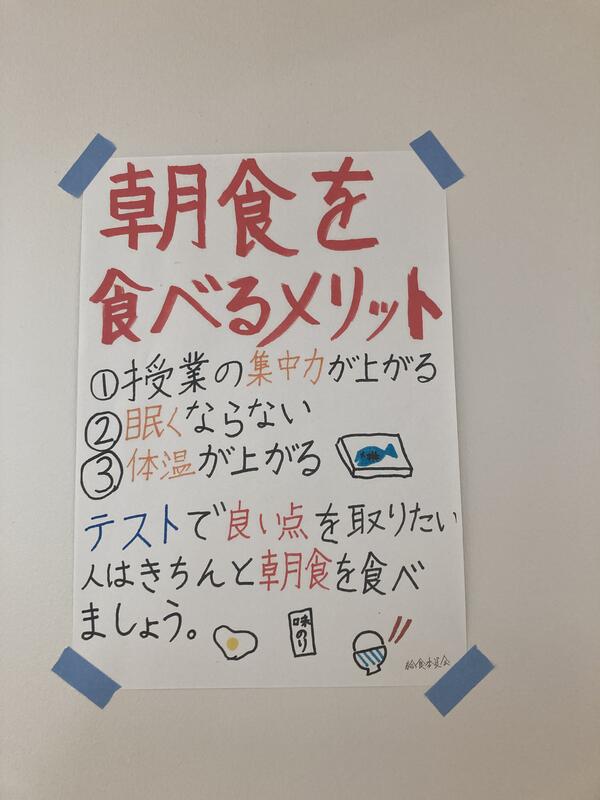 朝食を
食べるメリット
①授業の集中力が上がる
②眠くならない
③体温が上がる
テストで良い点を取りたい
人はきちんと朝食を食べ
ましょう。
味のり
給食委員会